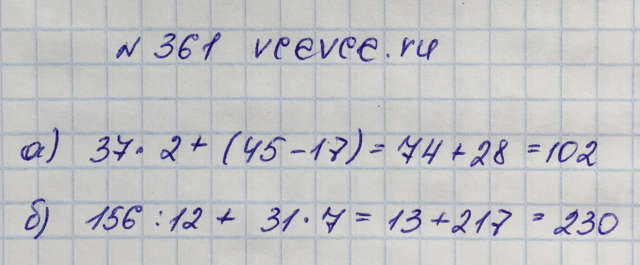 № 361 veevee.ru
а) 37 · 2 + (45 - 17) = 74 + 28 = 102
б) 156 : 12 + 31 · 7 = 13 + 217 = 230